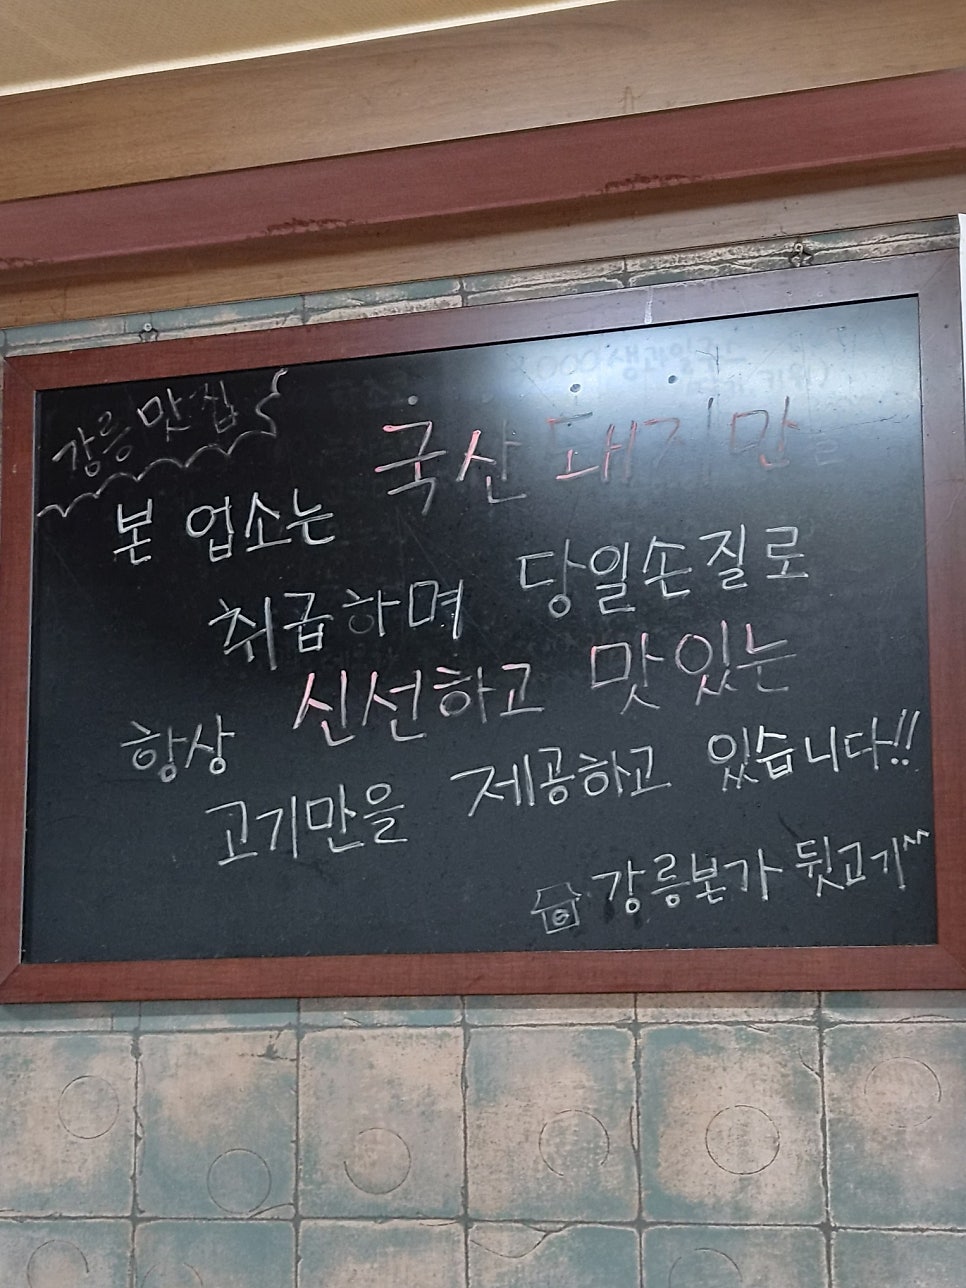 강릉맛집
본 업소는 국산 돼지만을
취급하며 당일손질로
항상 신선하고 맛있는
고기만을 제공하고 있습니다!!
강릉본가 뒷고기^^